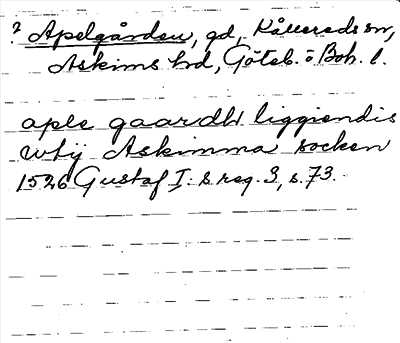 ? Apelgården, gd, Kållereds sn,
Askims hd, Göteb. o Boh. l.
aple gaardh liggiendis
vthij Askimma socken
1526 Gustaf I:s reg. 3, s. 73.